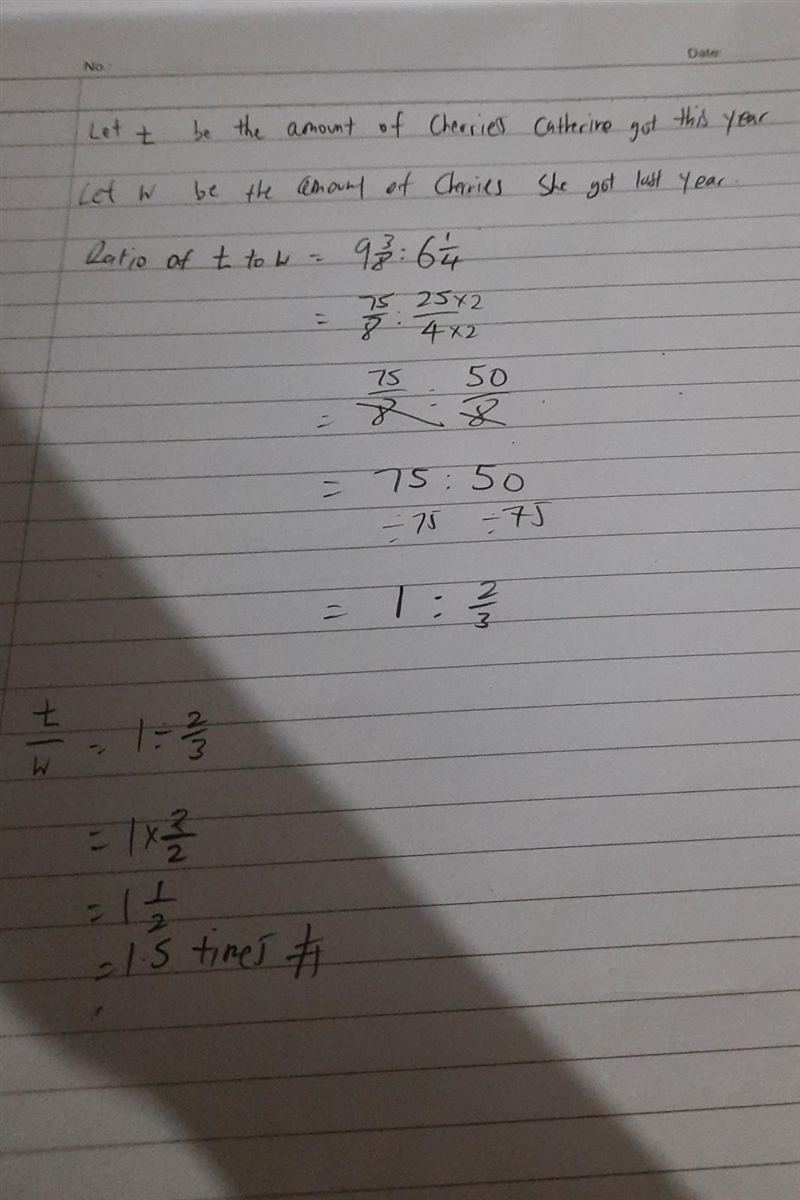 No.
Date:
Let t be the amount of Cherries Catherine got this year
Let W be the amount of Cherries She got last year.
Ratio of t to W = 9 3/8 : 6 1/4
= 75/8 : 25×2/4×2
= 75/8 : 50/8
= 75 : 50
÷75 ÷75
= 1 : 2/3
t/W = 1 ÷ 2/3
= 1 × 3/2
= 1 1/2
= 1.5 times #